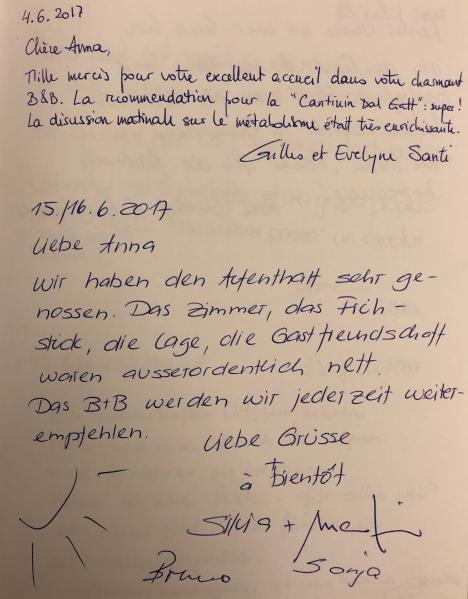 4.6.2017
Chère Anna,
Mille mercis pour votre excellent accueil dans votre charmant
B&B. La recommendation pour la "Cantinin Dal Gatt": super!
La discussion matinale sur le métabolisme était très enrichissante.
Gilles et Evelyne Santi
15./16.6.2017
Liebe Anna
Wir haben den Aufenthalt sehr ge-
nossen. Das Zimmer, das Früh-
stück, die Lage, die Gastfreundschaft
waren ausserordentlich nett.
Das B+B werden wir jederzeit weiter-
empfehlen.
Liebe Grüsse
à bientôt
Silvia +
Bruno Sonja